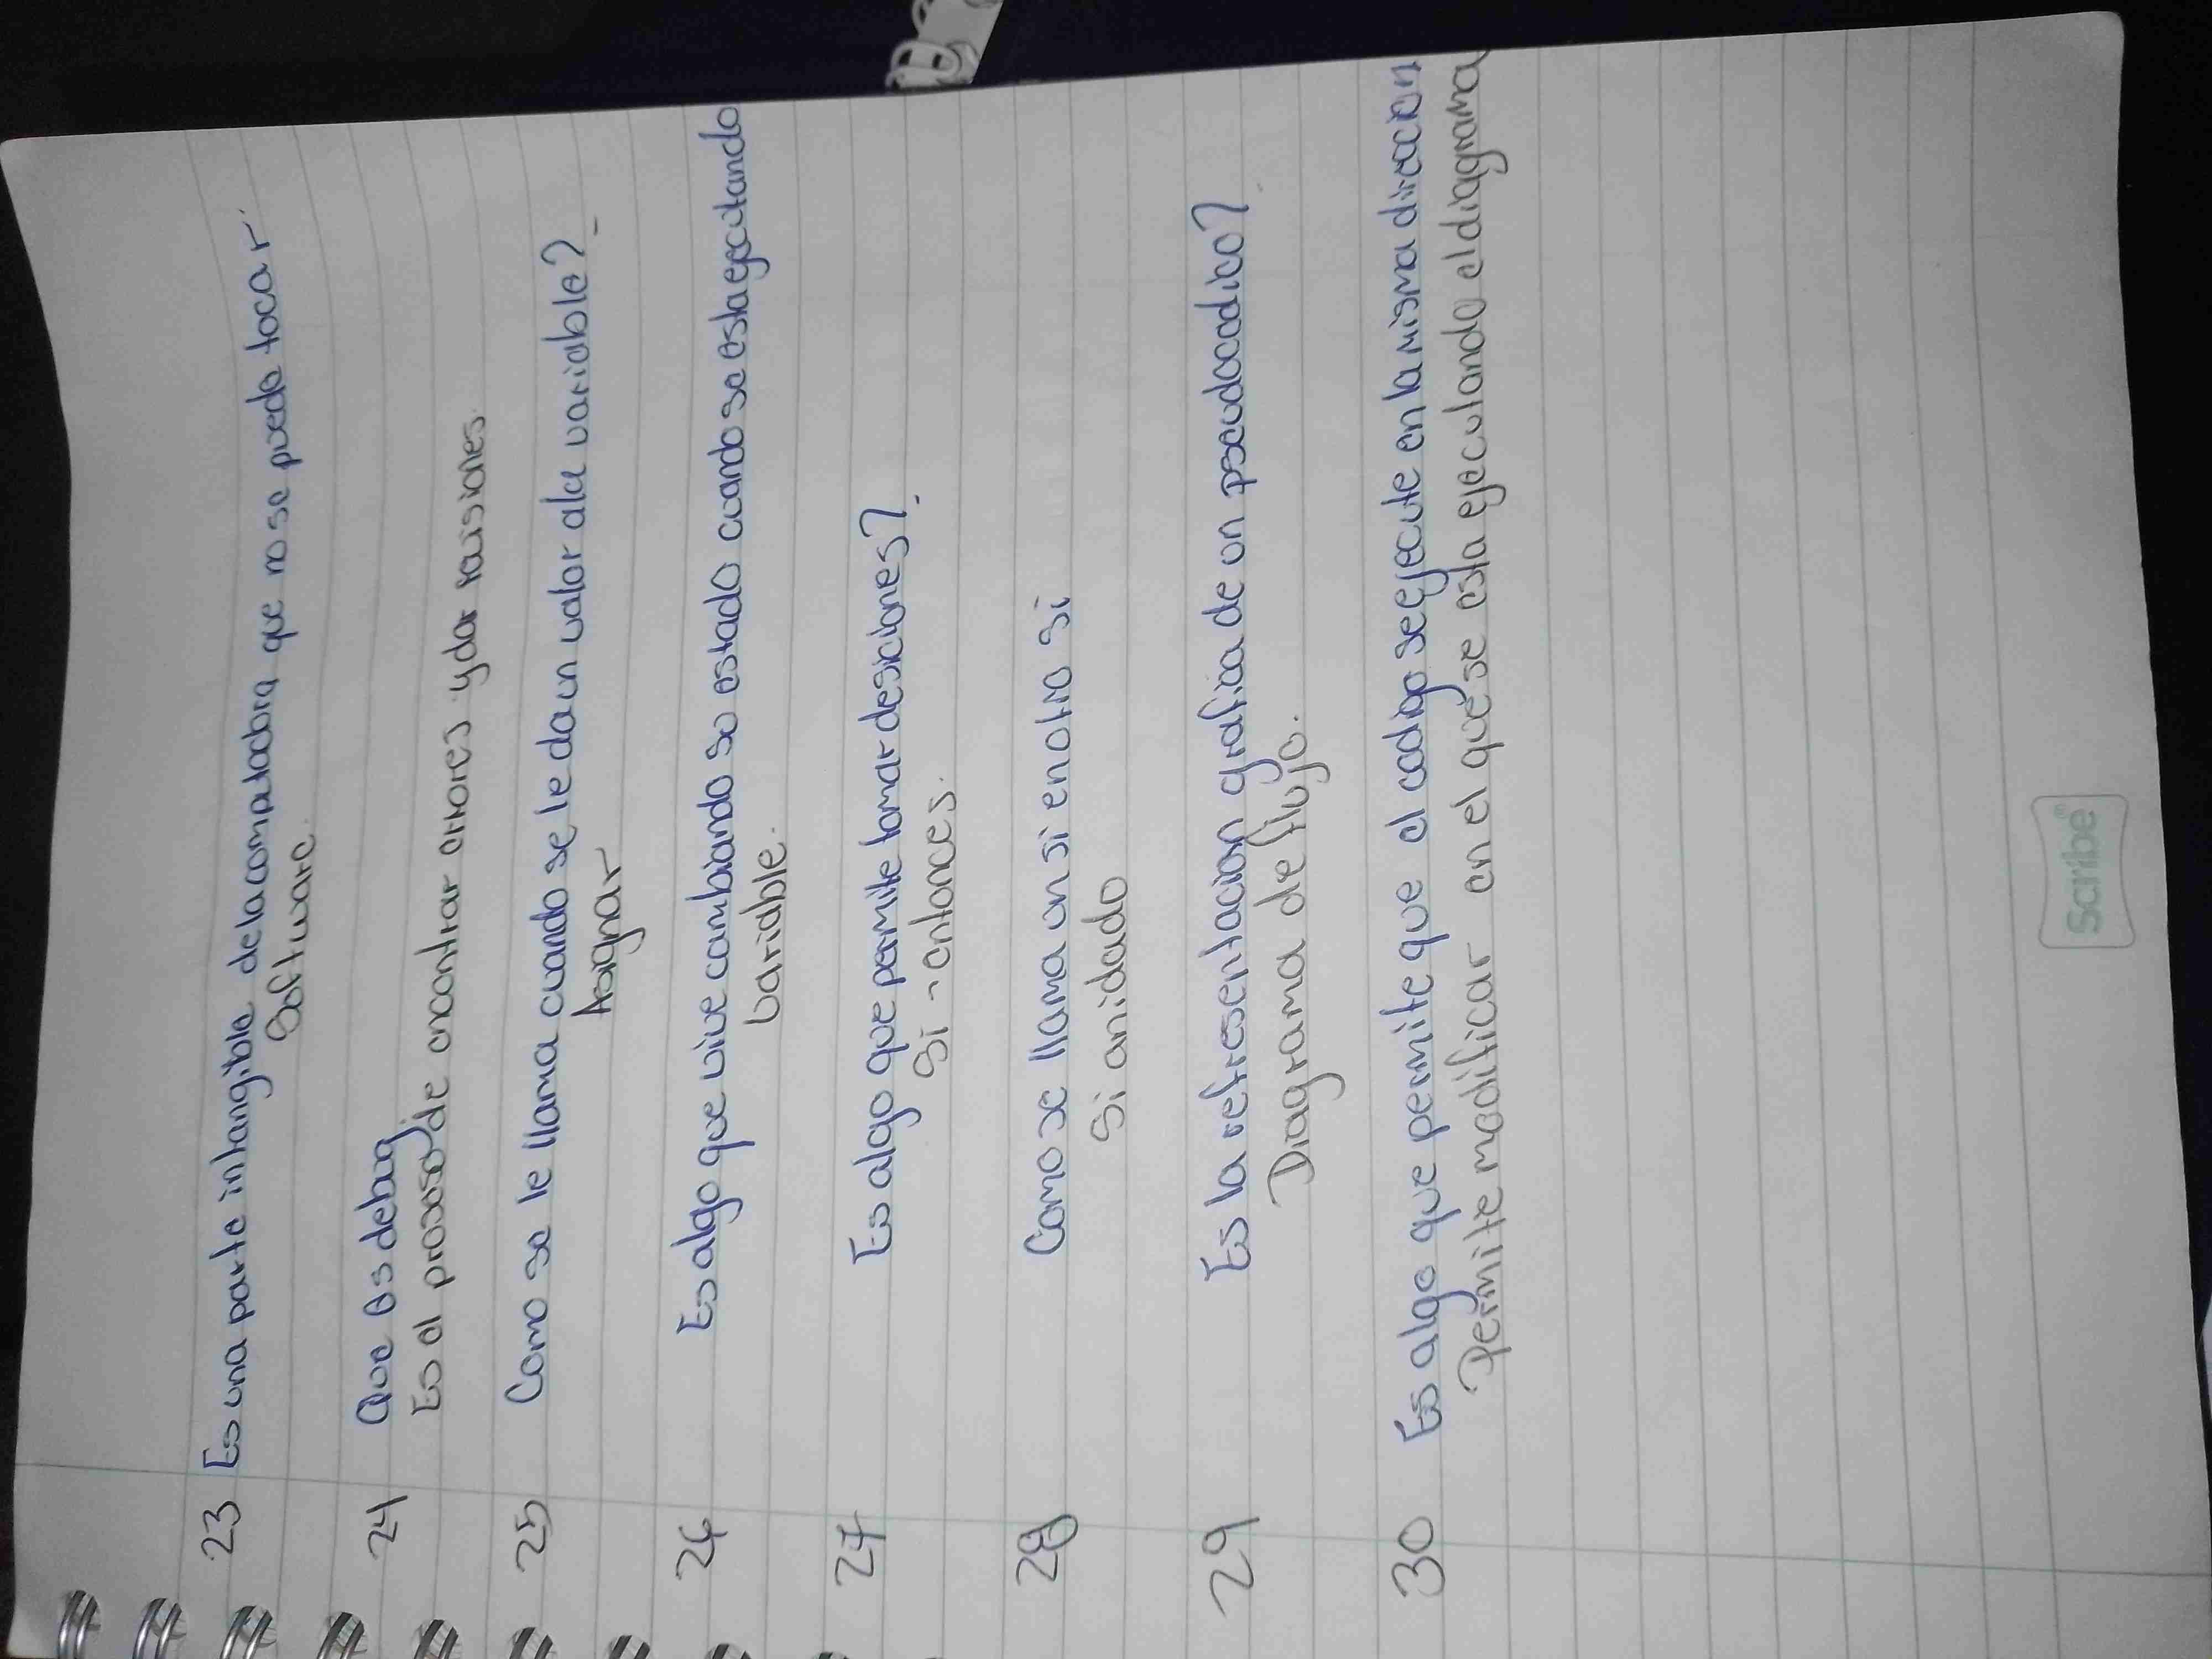 23 Es una parte intangible de la computadora que no se puede tocar
Software.
24 Que es debug.
Es el proceso de encontrar errores y dar revisiones.
25 Como se le llama cuando se le da un valor ala variable?
Asignar
26 Es algo que vive cambiando su estado cuando se esta ejecutando
variable.
27 Es algo que permite tomar desiciones?
Si - entonces.
28 Como se llama un si en otro si
Si anidado
29 Es la refresentacion grafica de un pseudocodico?
Diagrama de flujo.
30 Es algo que permite que el codigo se ejecute en la misma direccion
Permite modificar en el que se esta ejecutando el diagrama
Scribe